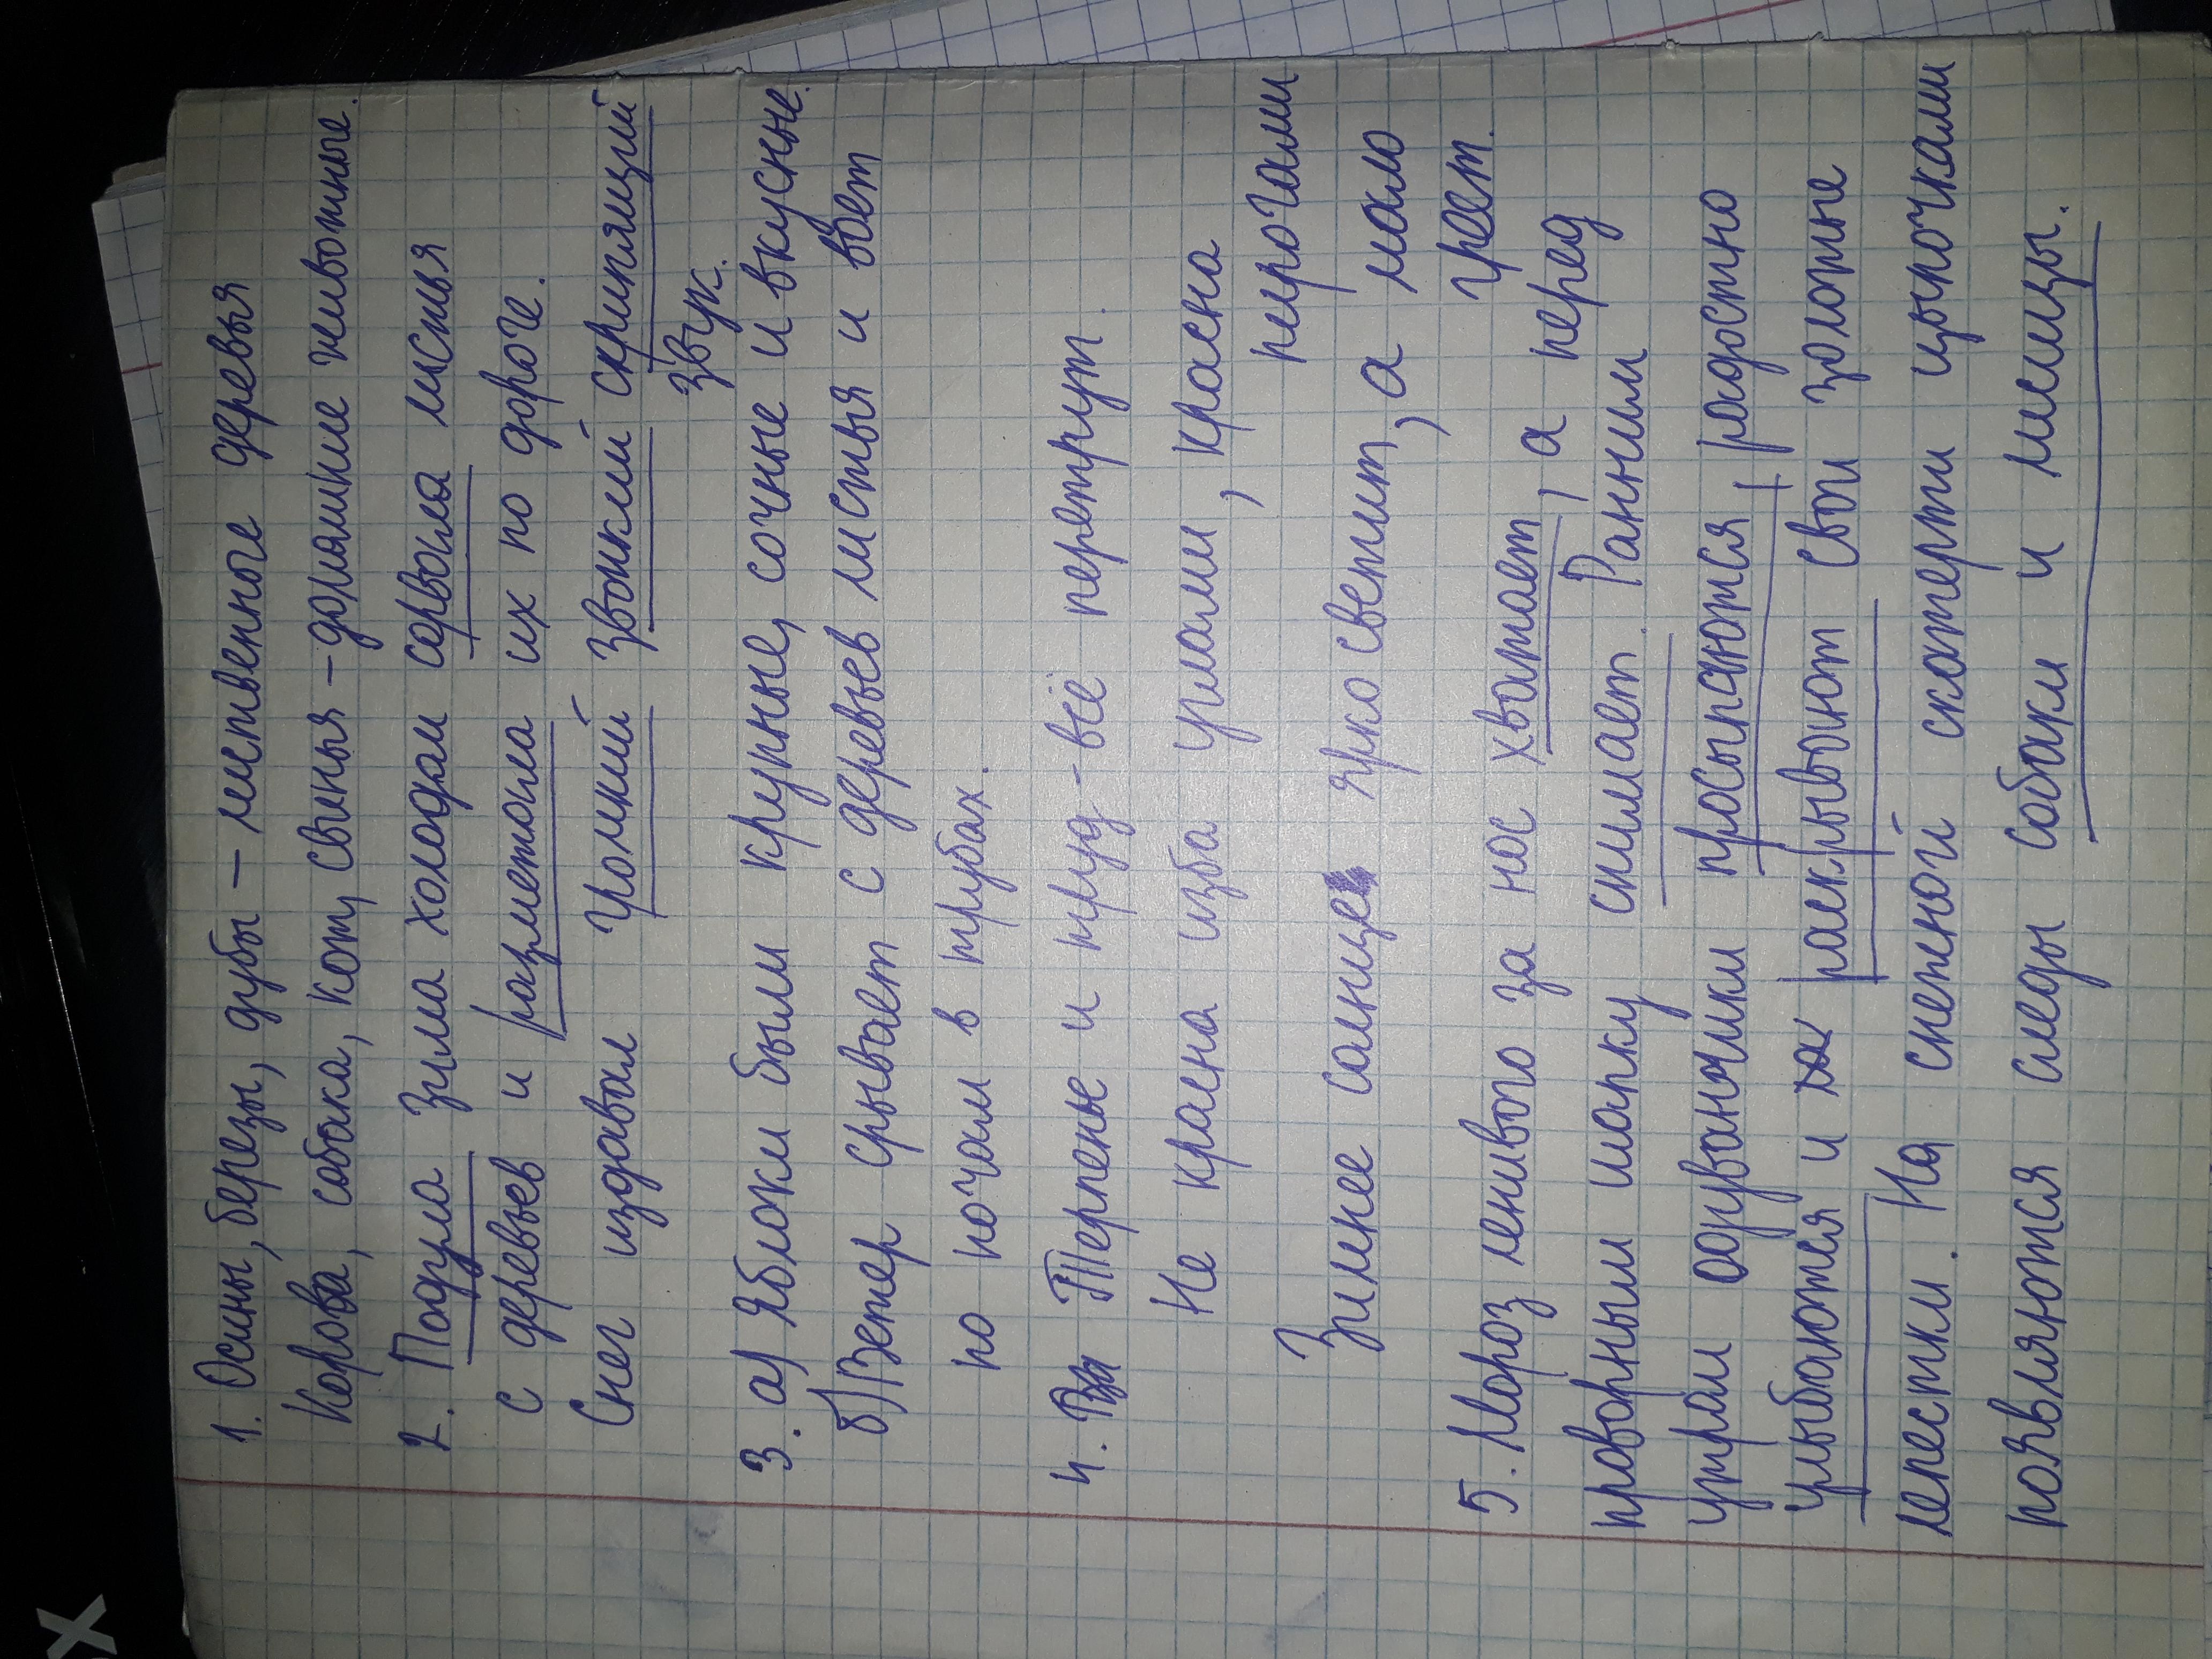 1. Осины, березы, дубы – лиственные деревья
Корова, собака, кот, свинья – домашние животные.
2. Подула зима холодом сорвала листья
с деревьев и разметала их по дороге.
Снег издавал громкий звонкий скрипящий
звук.
3. а) Яблоки были крупные, сочные и вкусные.
б) Ветер срывает с деревьев листья и воет
по ночам в трубах.
4. Терпенье и труд – всё перетрут.
Не красна изба углами, красна
пирогами
Зимнее солнце ярко светит, а мало
греет.
5. Мороз ленивого за нос хватает, а перед
проворным шапку снимает. Ранним
утром одуванчики просыпаются, радостно
улыбаются и раскрывают свои золотые
лепестки. На снежной скатерти цыпочками
появляются следы собаки и лисицы.